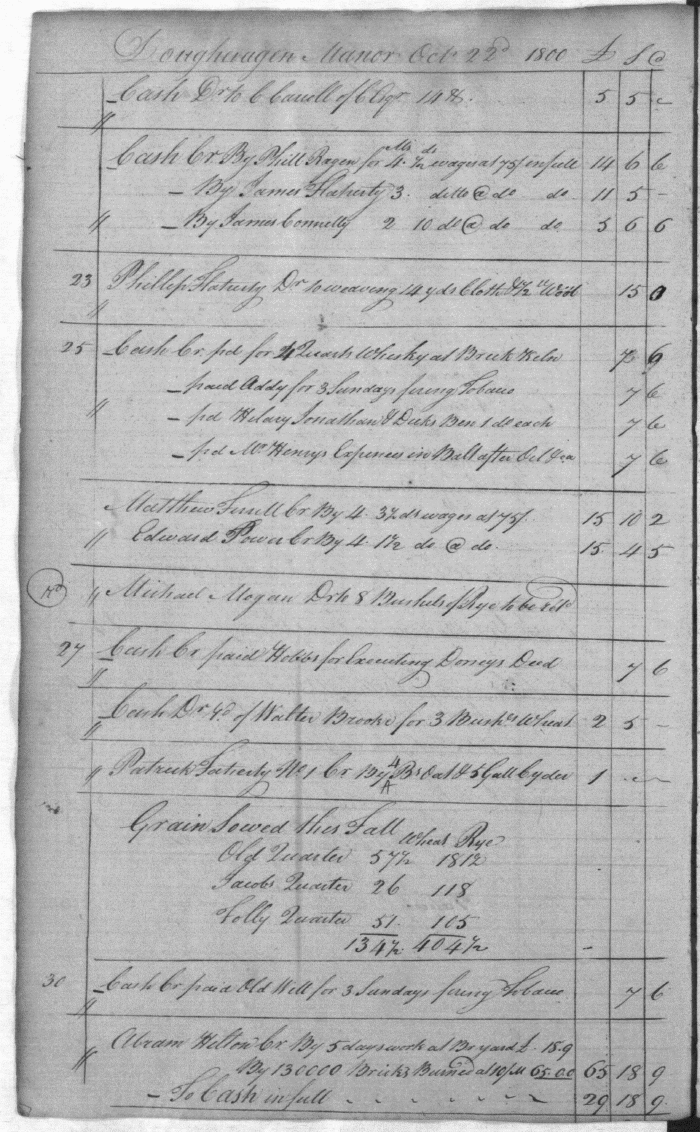 Doughoragen Manor Oct. 22d 1800 £ S d
Cash Dr to C Carroll of C Esqr 14 Ds. 5 5 -
" Cash Cr By Phill Ragen for 4 Ms ½ ds wages at 75/ in full 14 6 6
- By James Flaherty 3 ditto @ do do 11 5 -
" - By James Connelly 2 10 do @ do do 5 6 6
23 Phillip Flaherty Dr to weaving 14 yds Cloth 15 0
25 Cash Cr pd for 4 Quarts Whisky at Brick Keln 7 6
- paid Addy for 3 Sundays firing Tobaco 7 6
" - pd Hilary Jonathan & Dicks Ben 1 do each 7 6
- pd Mr Henrys Expences in Balt after 7 6
Matthew Cr By 4 3½ ds wages at 75/ 15 10 2
" Edward Power Cr By 4 1½ do @ do 15 4 5
" Michael Mogan Dr to 8 Bushels of Rye to be
27 Cash Cr paid Hobbs for Executing Dorseys Deed 7 6
" Cash Dr of Walter Brooke for 3 Bushs Wheat 2 5 -
" Patrick Flaherty No 1 Cr By 4 Bs Oats & 5 Gall Cyder 1 - -
Grain Sowed this Fall
Wheat Rye
Old Quarter 57½ 181½
Jacobs Quarter 26 118
Folly Quarter 51 105
134½ 404½
30 Cash Cr paid Old Will for 3 Sundays firing Tobaco 7 6
" Abram Helton Cr By 5 days work at Br yard £ 18.9
By 130000 Bricks Burned at 10/ M 65.00 65 18 9
- To Cash in full 29 18 9